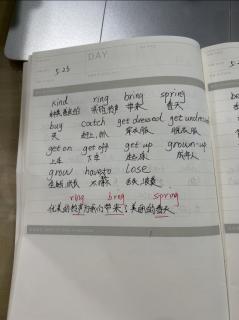 DAY
5.23
kind ring bring spring
种类,善良的 铃, 铃声 带来 春天
buy catch get dressed get undressed
买 赶上, 抓 穿衣服 脱衣服
get on get off get up grown-up
上车 下车 起床 成年人
grow have to lose
生长, 成长 不得不 丢失,
ring bring spring
优美的铃声为我们带来了美丽的春天